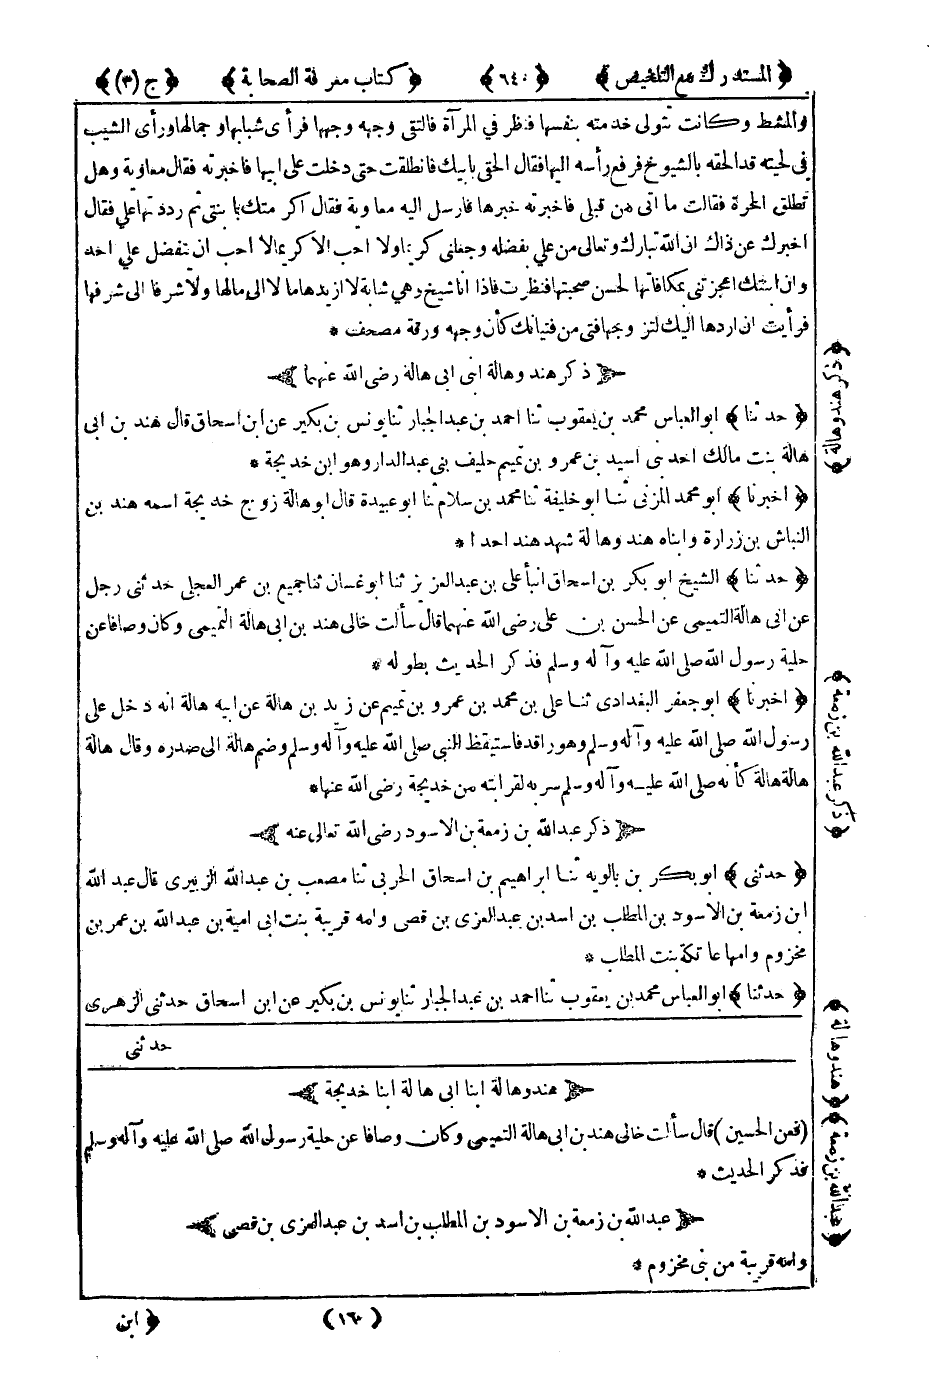 ﴿ المستدرك مع التلخيص ﴾ ﴿ ٦٤٠ ﴾ ﴿ كتاب معرفة الصحابة ﴾ ﴿ ج (٣) ﴾
والمشط وكانت تتولى خدمته بنفسها فنظر في المرآة فالتقى وجهه وجهها فرأى شبابها وجمالها ورأى الشيب
في لحيته قد الحقه بالشيوخ فرفع رأسه اليها فقال الحقي بابيك فانطلقت حتى دخلت على ابيها فاخبرته فقال معاوية وهل
تطلق الحرة فقالت ما اتى من قبلي فاخبرته خبرها فارسل اليه معاوية فقال اكرمتك بابنتي ثم رددتها علي فقال
اخبرك عن ذاك ان الله تبارك وتعالى من علي بفضله وجعلني كريما ولا احب الا كريما لا احب ان يتفضل علي احد
وان ابنتك اعجزتني بمكافاتها لحسن صحبتها فنظرت فاذا انا شيخ وهي شابة لا ازيدها مالا الى مالها ولا شرفا الى شرفها
فرأيت ان اردها اليك لتزوجها فتى من فتيانك كأن وجهه ورقة مصحف *
ذكر هند وهالة ابنى ابى هالة رضى الله عنهما
﴿ حدثنا ﴾ ابو العباس محمد بن يعقوب ثنا احمد بن عبد الجبار ثنا يونس بن بكير عن ابن اسحاق قال هند بن ابى
هالة بنت مالك احد بنى اسيد بن عمرو بن تميم حليف بنى عبد الدار وهو ابن خديجة *
﴿ اخبرنا ﴾ ابو محمد المزنى ثنا ابو خليفة ثنا محمد بن سلام ثنا ابو عبيدة قال ابو هالة زوج خديجة اسمه هند بن
النباش بن زرارة وابناه هند وهالة شهد هند احدا *
﴿ حدثنا ﴾ الشيخ ابو بكر بن اسحاق انبأ على بن عبد العزيز ثنا ابو غسان ثنا جميع بن عمر العجلى حدثنى رجل
عن ابى هالة التميمى عن الحسن بن على رضى الله عنهما قال سألت خالى هند بن ابى هالة التميمى وكان وصافا عن
حلية رسول الله صلى الله عليه وآله وسلم فذكر الحديث بطوله *
﴿ اخبرنا ﴾ ابو جعفر البغدادى ثنا على بن محمد بن عمرو بن تميم عن زيد بن هالة عن ابيه هالة انه دخل على
رسول الله صلى الله عليه وآله وسلم وهو راقد فاستيقظ النبى صلى الله عليه وآله وسلم وضم هالة الى صدره وقال هالة
هالة هالة كأنه صلى الله عليه وآله وسلم سر به لقرابته من خديجة رضى الله عنها *
ذكر عبد الله بن زمعة بن الاسود رضى الله تعالى عنه
﴿ حدثنى ﴾ ابو بكر بن بالويه ثنا ابراهيم بن اسحاق الحربى ثنا مصعب بن عبد الله الزبيرى قال عبد الله
ابن زمعة بن الاسود بن المطلب بن اسد بن عبد العزى بن قصى وامه قريبة بنت ابى امية بن عبد الله بن عمر بن
مخزوم وامها عاتكة بنت المطلب *
﴿ حدثنا ﴾ ابو العباس محمد بن يعقوب ثنا احمد بن عبد الجبار ثنا يونس بن بكير عن ابن اسحاق حدثنى الزهرى
حدثنى
هند وهالة ابنا ابى هالة ابنا خديجة
(فعن الحسين) قال سألت خالى هند بن ابى هالة التميمى وكان وصافا عن حلية رسول الله صلى الله عليه وآله وسلم
فذكر الحديث *
عبد الله بن زمعة بن الاسود بن المطلب بن اسد بن عبد العزى بن قصى
وامه قريبة من بنى مخزوم *
(١٦٠) ﴿ ابن
﴿ ذكر هند وهالة ﴾
﴿ ذكر عبد الله بن زمعة ﴾
﴿ هند وهالة ﴾
﴿ عبد الله بن زمعة ﴾